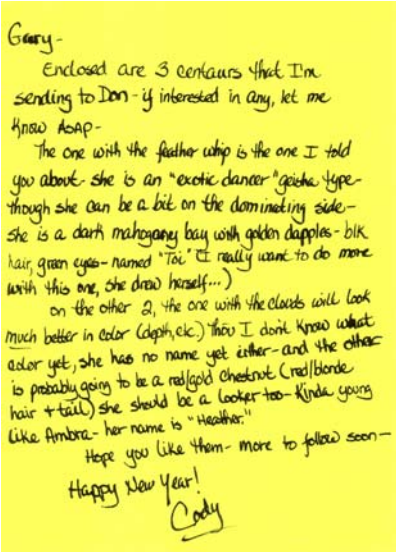 Gary -
Enclosed are 3 centaurs that I'm
sending to Don - if interested in any, let me
Know ASAP -
The one with the feather whip is the one I told
you about - she is an "exotic dancer" geisha type -
though she can be a bit on the dominating side -
she is a dark mahogany bay with golden dapples - blk
hair, green eyes - named "Toi" (I really want to do more
with this one, she drew herself...)
on the other 2, the one with the clouds will look
much better in color (depth, etc.) thou I don't know what
color yet, she has no name yet either - and the other
is probably going to be a red/gold chestnut (red/blonde
hair + tail) she should be a looker too - Kinda young
like Ambra - her name is "Heather."
Hope you like them - more to follow soon -
Happy New Year!
Cody